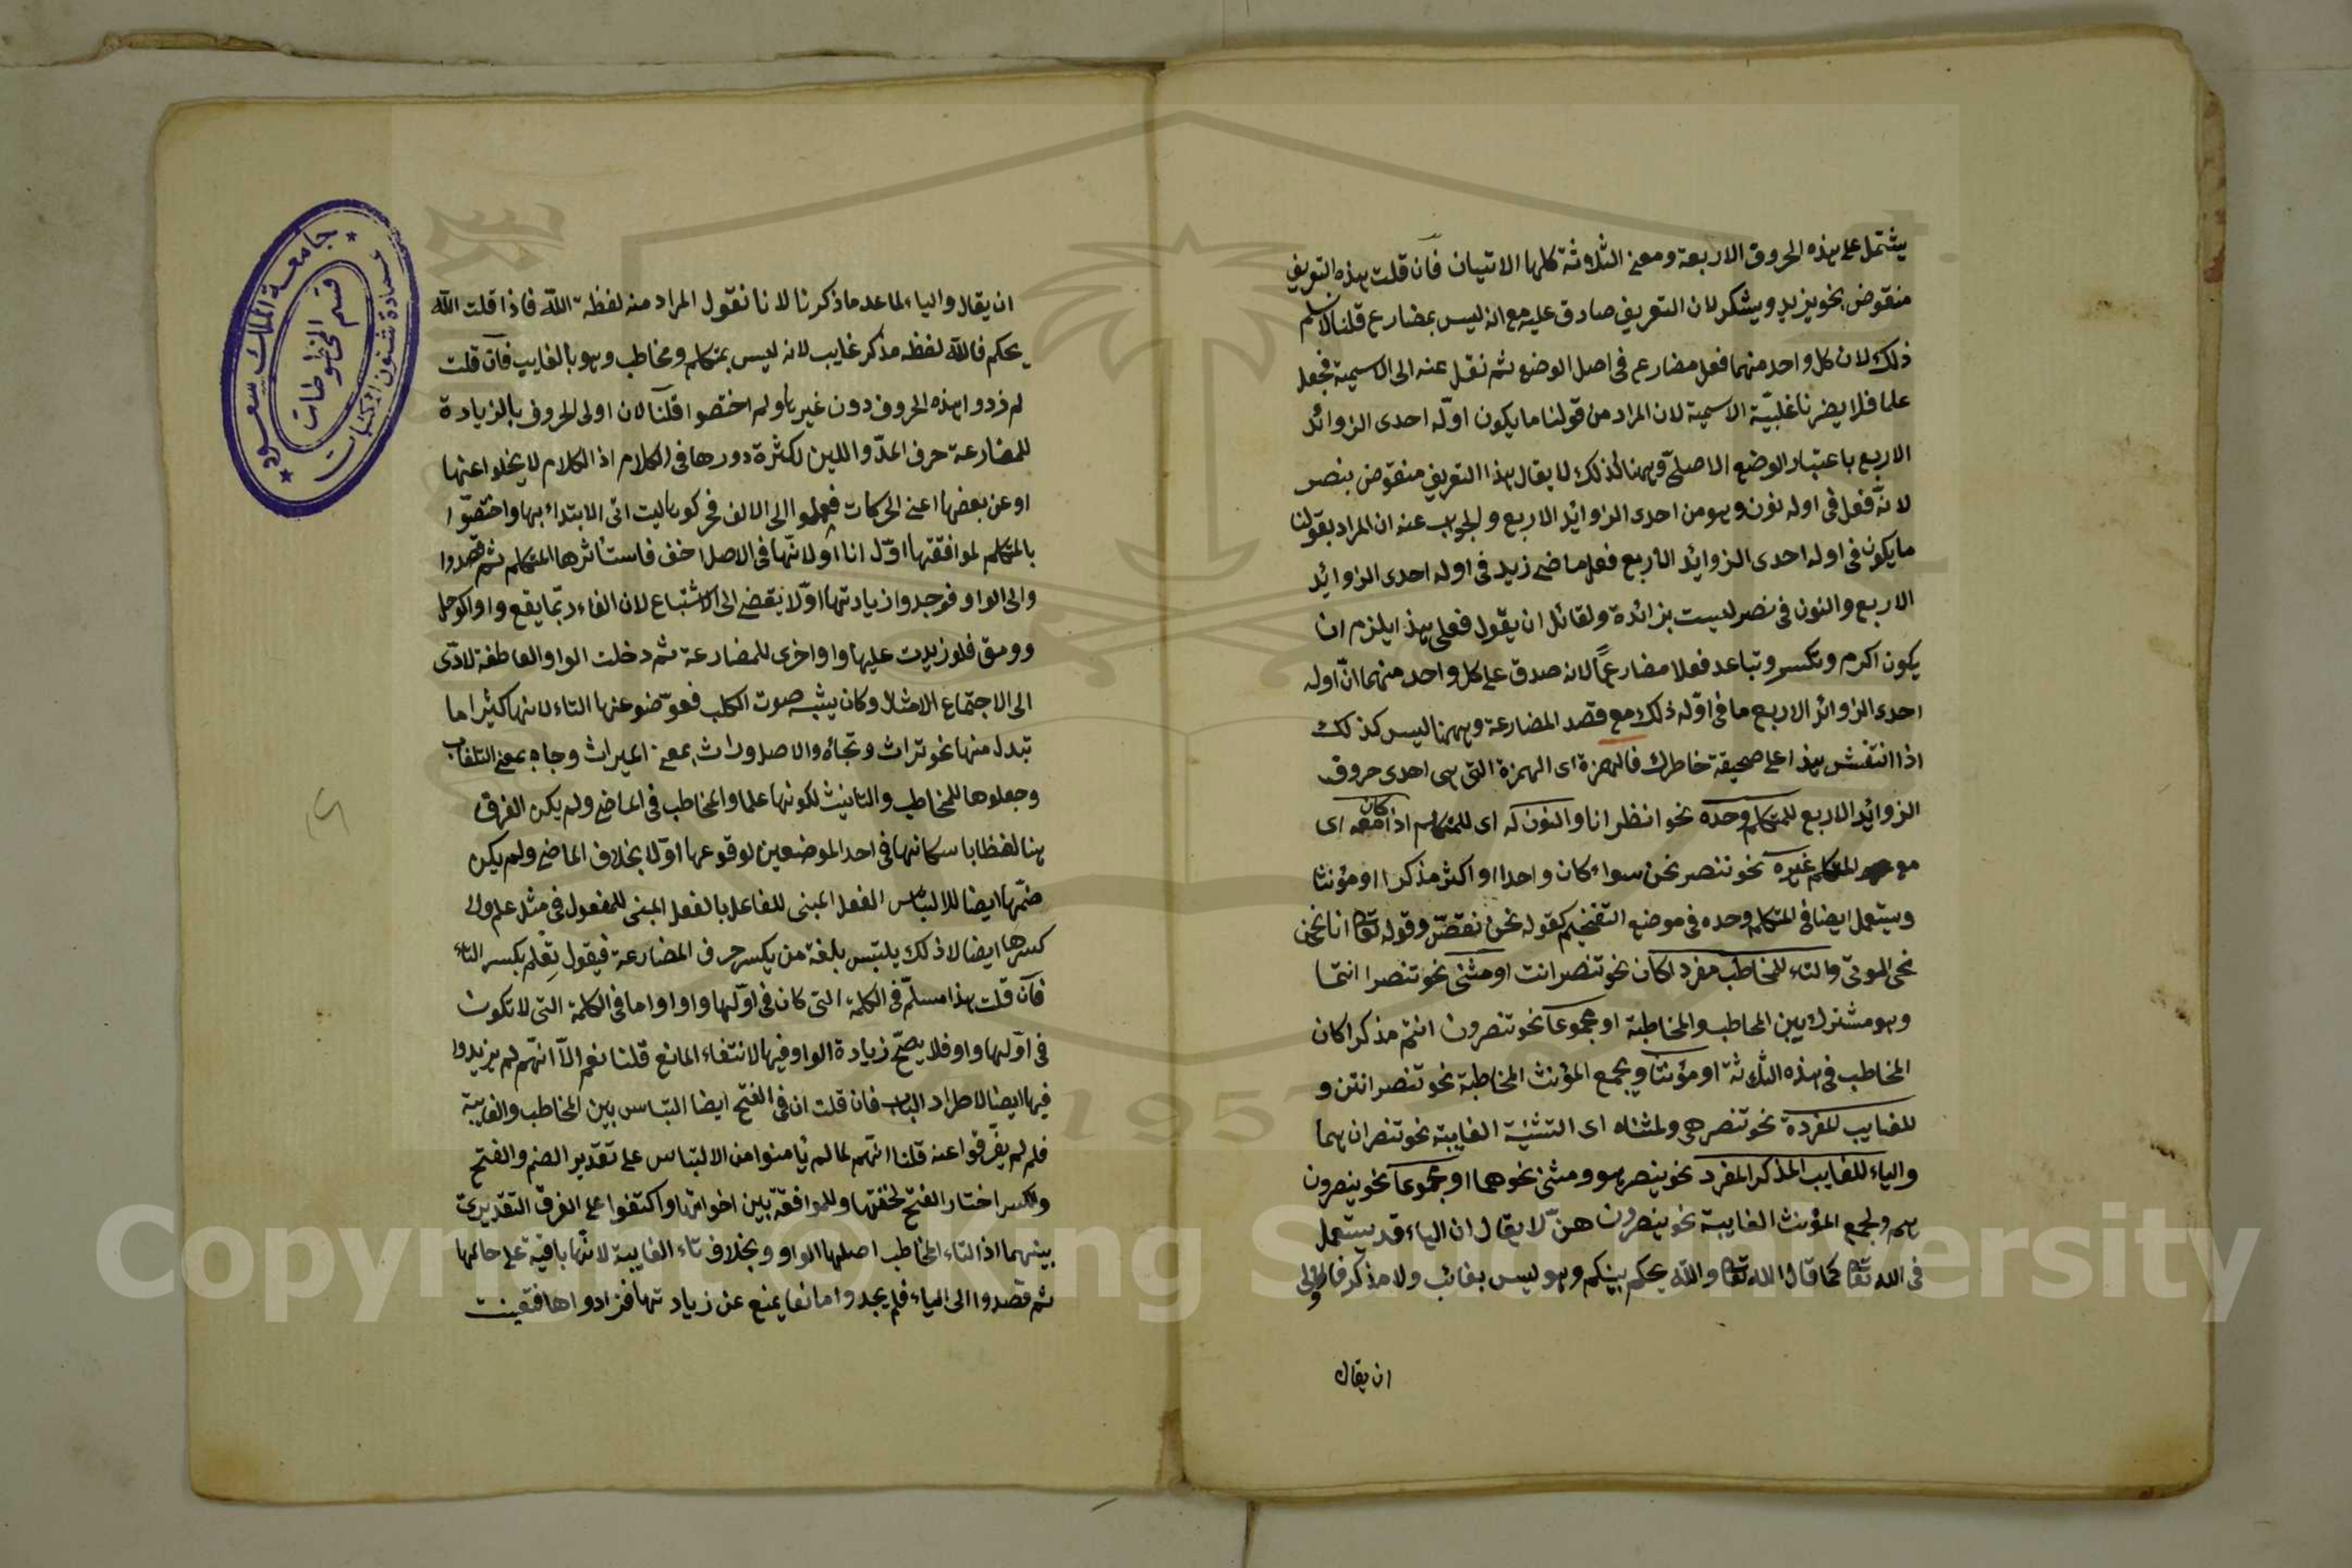 يشتمل على هذه الحروف الاربعة ومعنى الثلاثة كلها الاتيان فان قلت هذه التعريف
منقوض بنحو يزيد ويشكر لان التعريف صادق عليه مع انه ليس بمضارع قلنا لا نسلم
ذلك لان كل واحد منهما فعل مضارع فى اصل الوضع ثم نقل عنه الى الاسمية فجعل
علما فلا يضرنا غلبيّة الاسمية لان المراد من قولنا ما يكون اوّله احدى الزوائد
الاربع باعتبار الوضع الاصلىّ وههنا كذلك لا يقال هذا التعريف منقوض بنصر
لانّه فعل فى اوله نون وهو من احدى الزوائد الاربع والجواب عنه ان المراد بقولنا
ما يكون فى اوله احدى الزوائد الاربع فعل ماضى زيد فى اوله احدى الزوائد
الاربع والنون فى نصر ليست بزائدة ولقائل ان يقول فعلى هذا يلزم ان
يكون اكرم وتكسر وتباعد فعلا مضارعاً لانه صدق على كل واحد منهما انّ اوله
احدى الزوائد الاربع ما فى اوّله ذلك مع قصد المضارعة وههنا ليس كذلك
اذا انتقش هذا على صحيفة خاطرك فالهمزة اى الهمزة التى هى احدى حروف
الزوائد الاربع للمتكلم وحده نحو انظر انا والنون له اى للمتكلم اذا كان معه اى
مع المتكلم غيره نحو ننصر نحن سواء كان واحدا او اكثر مذكرا او مؤنثا
ويستعمل ايضا فى المتكلم وحده فى موضع التفخيم كقوله نحن نقصّ وقوله تعا انا نحن
نحى الموتى والتاء للمخاطب مفردا كان نحو تنصر انت او مثنى نحو تنصرا انتما
وهو مشترك بين المخاطب والمخاطبة او مجموعا نحو تنصرون انتم مذكرا كان
المخاطب فى هذه الثلثة او مؤنثا ويجمع المؤنث المخاطبة نحو تنصر انتن و
للغايب للمفردة نحو تنصر هى ولمثناه اى التثنية الغايبة نحو تنصران هما
والياء للغايب المذكر المفرد نحو ينصر هو ومثنى نحو هما او مجموعا نحو ينصرون
هم ولجمع المؤنث الغايبة نحو ينصرون هنّ لا يقال ان الياء قد يستعمل
فى الله تعا كما قال الله تعا والله يحكم بينكم وهو ليس بغائب ولا مذكر فالاولى
ان يقال
ان يقال والياء لما عدا ما ذكرنا لانا نقول المراد منه لفظة الله فاذا قلت الله
يحكم فالله لفظه مذكر غايب لانه ليس بمتكلم ومخاطب وهو بالغايب فان قلت
لم زدوا هذه الحروف دون غيرها ولم اختصوا قلنا لان اولى الحروف بالزيادة
للمضارعة حرف المدّ واللين لكثرة دورها فى الكلام اذ الكلام لا يخلوا عنها
او عن بعضها اعنى الحركات فعمدوا الى الالف فحركوها ليتاتى الابتداء بها واختصّوا
بالمتكلم لموافقتها اوّل انا او لانّها فى الاصل اخف فاستأثرها المتكلم ثم قصدوا
والى الواو فوجدوا زيادتها اوّلا يقضى الى الاشتباع لان الفاء ربّما يقع واوا كوجل
وومق فلو زيدت عليها واو اخرى للمضارعة ثم دخلت الواو العاطفة لادّى
الى الاجتماع الامثال وكان يشبه صوت الكلب فعوّضوا عنها التاء لانها كثيرا ما
تبدل منها نحو تراث وتجاه والاصل وراث بمعنى الميراث وجاه بمعنى التلقاب
وجعلوها للمخاطب والتانيث لكونها علما والمخاطب فى الماضى ولم يكن الفرق
هنا لفظا باسكانها فى احد الموضعين لوقوعها اوّلا بخلاف الماضى ولم يكن
ضمّها ايضا للالتباس الفعل المبنى للفاعل بالفعل المبنى للمفعول فى مثل علم ولا
كسرها ايضا لاذلك يلتبس بلغة من يكسر حرف المضارعة فيقول تِعْلم بكسر التاء
فان قلت هذا مسلّم فى الكلمة التى كان فى اوّلها واوا واما فى الكلمة التى لا تكون
فى اوّلها واو فلا يصحّ زيادة الواو فيها لانتفاء المانع قلنا نعم الّا انّهم لم يزيدوا
فيها ايضا لاطراد الباب فان قلت ان فى الفتح ايضا التباس بين المخاطب والغايبة
فلم لم يفرّقوا عنه قلنا انّهم لما لم يأمنوا من الالتباس على تقدير الضم والفتح
والكسر اختار الفتح لخفتها وللموافقة بين اخواتها واكتفوا على الفرق التقديرى
بينهما اذ التاء المخاطب اصلها الواو وبخلاف تاء الغايبة لانّها باقية على حالها
ثم قصدوا الى الياء فلم يجدوا مانعا يمنع عن زيادتها فزادواها فتعينت
جامعة الملك سعود
عمادة شئون المكتبات
قسم المخطوطات
Copyright © King Saud University
1957